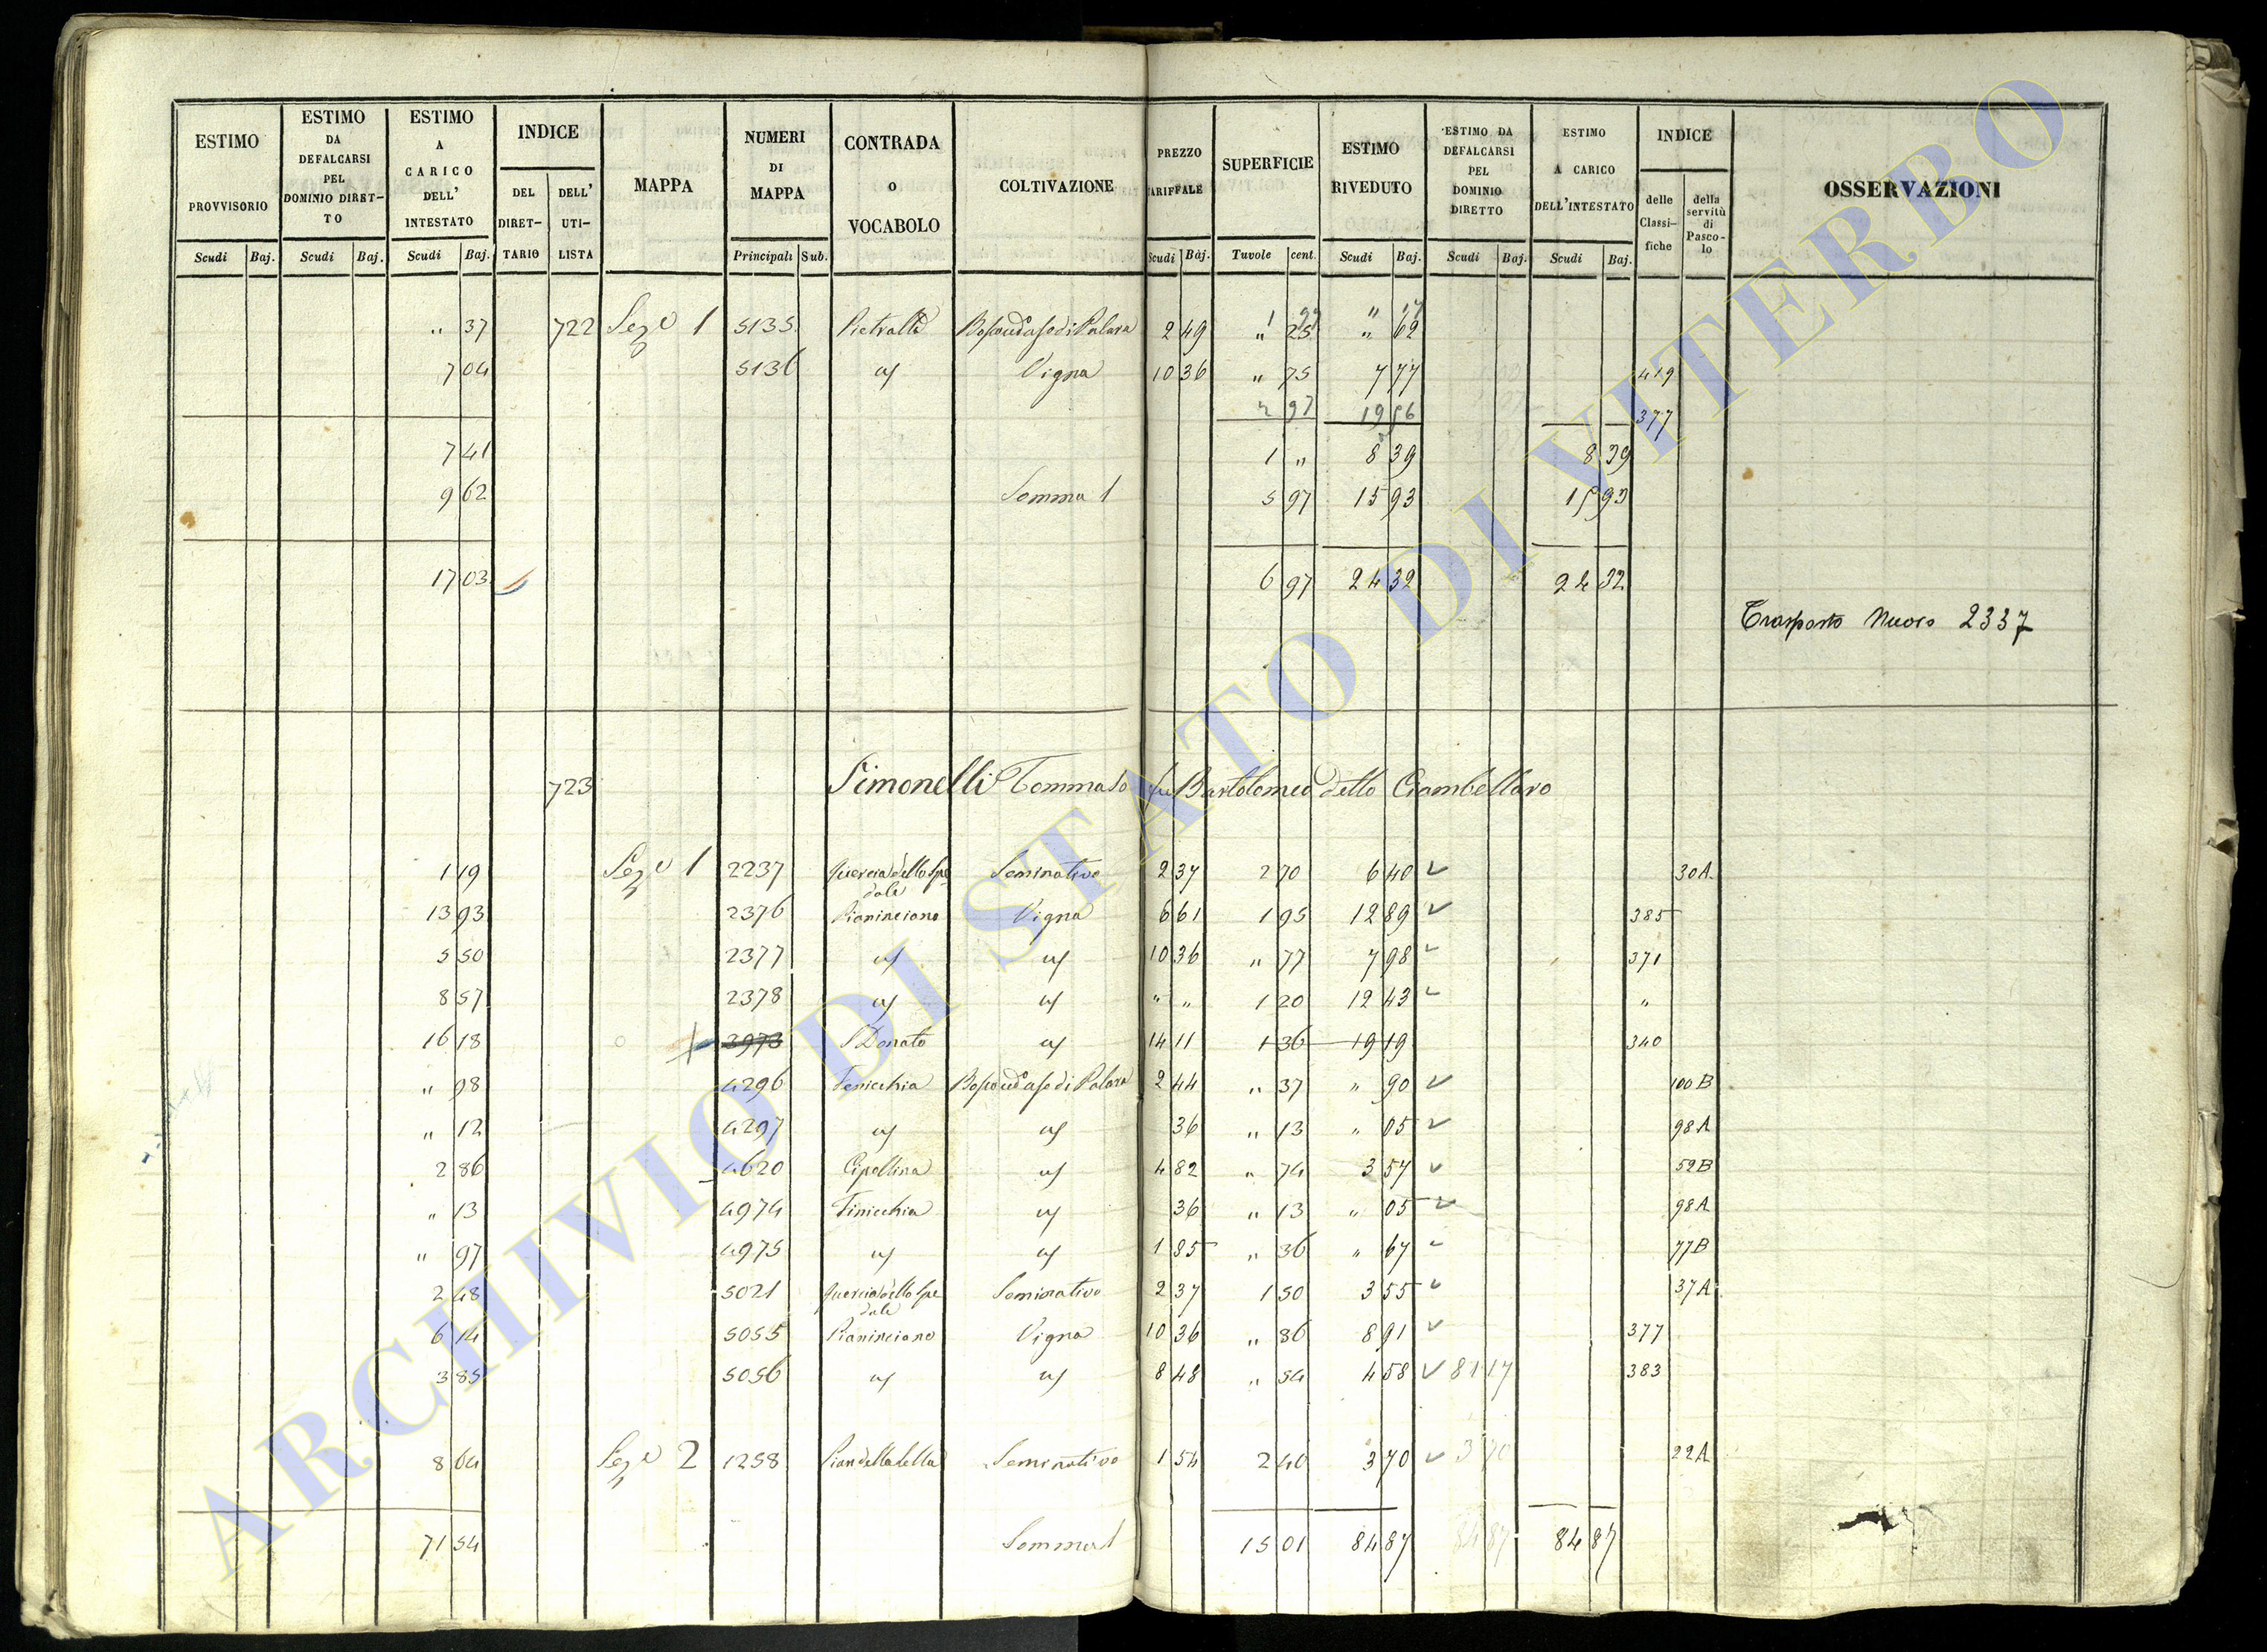 ESTIMO PROVVISORIO Scudi Baj.
ESTIMO DA DEFALCARSI PEL DOMINIO DIRETTO Scudi Baj.
ESTIMO A CARICO DELL' INTESTATO Scudi Baj.
INDICE DEL DIRETTARIO DELL' UTILISTA
MAPPA
NUMERI DI MAPPA Principali Sub.
CONTRADA O VOCABOLO
COLTIVAZIONE
PREZZO TARIFFALE Scudi Baj.
SUPERFICIE Tavole cent.
ESTIMO RIVEDUTO Scudi Baj.
ESTIMO DA DEFALCARSI PEL DOMINIO DIRETTO Scudi Baj.
ESTIMO A CARICO DELL'INTESTATO Scudi Baj.
INDICE delle Classifiche della servitù di Pascolo
OSSERVAZIONI
" 37 722 Seze 1 5135 2 49 " 25 " 62
7 04 5136 Vigna 10 36 " 75 7 77 419
2 97 377
7 41 1 " 8 39 8 39
9 62 Somma 1 5 97 15 93 15 93
17 03 6 97 24 32 24 32
Trasporto Nuovo 2337
723 Simonelli Tommaso fu Bartolomeo detto Ciambellaro
1 19 Seze 1 2237 Quercia dello Spedale Seminativo 2 37 2 70 6 40 30A
13 93 2376 Pianinciano Vigna 6 61 1 95 12 89 385
5 50 2377 10 36 " 77 7 98 371
8 57 2378 " " 1 20 12 43 "
16 18 3973 S Donato 14 11 1 36 19 19 340
" 98 4296 Fenicchia 2 44 " 37 " 90 100B
" 12 4297 36 " 13 " 05 98A
2 86 4620 Cipollina 4 82 " 74 3 57 52B
" 13 4974 Finicchia 36 " 13 " 05 98A
" 97 4975 1 85 " 36 " 67 77B
2 48 5021 Quercia dello Spedale Seminativo 2 37 1 50 3 55 37A
6 14 5055 Pianinciano Vigna 10 36 " 86 8 91 377
3 85 5056 8 48 " 54 4 58 81 17 383
8 64 Seze 2 1258 Seminativo 1 54 2 40 3 70 3 70 22A
71 54 Somma 1 15 01 84 87 84 87 84 87
ARCHIVIO DI STATO DI VITERBO